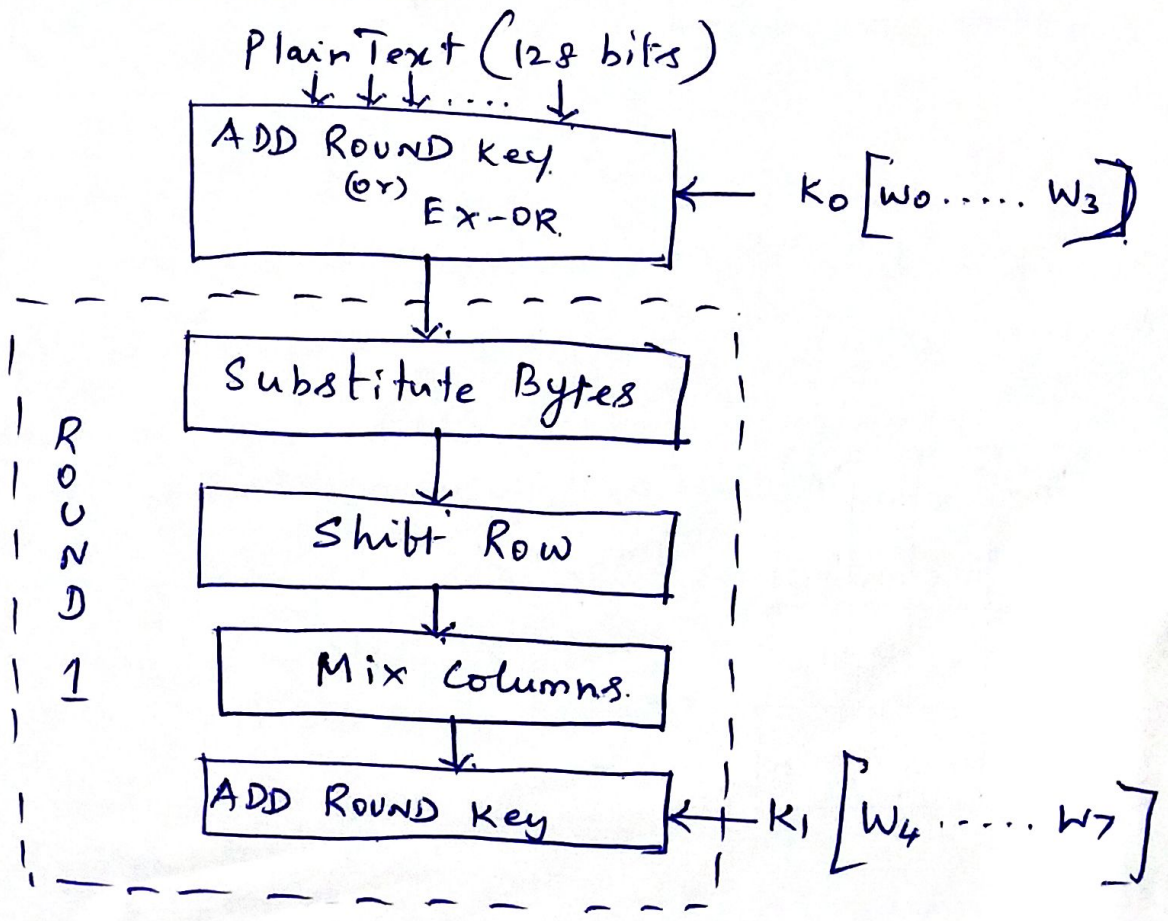 Plain Text (128 bits)
ADD ROUND Key.
(or)
Ex-OR.
K0 [W0..... W3]
Substitute Bytes
Shift Row
Mix Columns.
ADD ROUND Key
K1 [W4..... W7]
ROUND 1